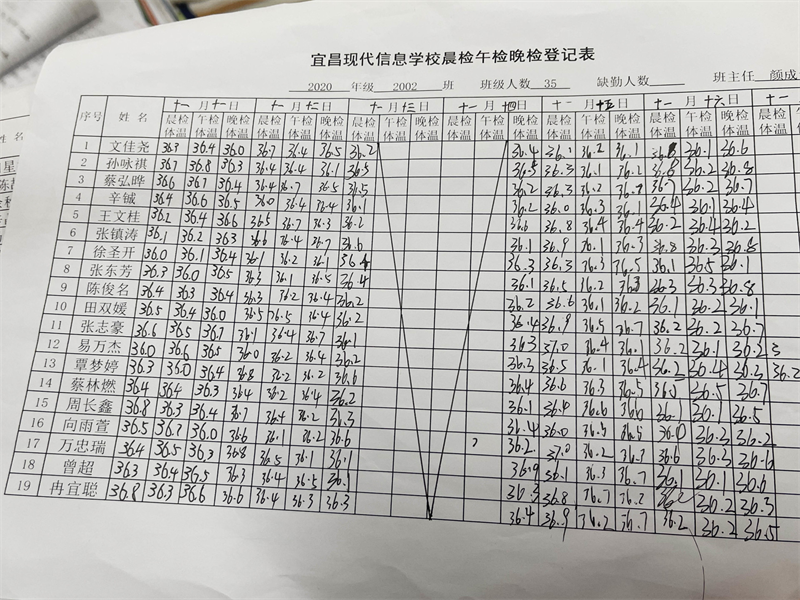 宜昌现代信息学校晨检午检晚检登记表
2020 年级 2002 班 班级人数 35 缺勤人数 班主任 颜成
序号 姓名 十一月十日 十一月十二日 十一月十三日 十一月十四日 十一月十五日 十一月十六日 十一
晨检体温 午检体温 晚检体温 晨检体温 午检体温 晚检体温 晨检体温 午检体温 晚检体温 晨检体温 午检体温 晚检体温 晨检体温 午检体温 晚检体温 晨检体温 午检体温 晚检体温 晨检体温
1 文佳尧 36.3 36.4 36.0 36.7 36.4 36.5 36.2 36.4 36.1 36.2 36.1 36.8 36.1 36.6
2 孙咏祺 36.7 36.8 36.3 36.4 36.4 36.1 36.5 36.5 36.3 36.1 36.2 36.8 36.2 36.8
3 蔡弘晔 36.6 36.7 36.4 36.4 36.7 36.5 36.5 36.2 36.3 36.2 36.7 36.2 36.7
4 辛铖 36.4 36.6 36.5 36.0 36.4 36.4 36.1 36.2 36.0 36.3 36.1 36.4 36.1 36.4
5 王文桂 36.2 36.4 36.6 36.5 36.7 36.3 36.2 36.6 36.8 36.4 36.4 36.2 36.4 36.2
6 张镇涛 36.1 36.2 36.3 36.6 36.4 36.7 36.6 36.1 36.9 36.1 36.3 36.8 36.3 36.8
7 徐圣开 36.0 36.1 36.4 36.1 36.2 36.1 36.4 36.3 36.3 36.3 36.5 36.1 36.5 36.1
8 张东芳 36.3 36.0 36.5 36.3 36.1 36.5 36.4 36.1 36.5 36.2 36.3 36.3 36.3 36.8
9 陈俊名 36.4 36.3 36.4 36.3 36.2 36.4 36.2 36.2 36.6 36.1 36.2 36.1 36.2 36.1
10 田双媛 36.5 36.4 36.0 36.5 36.5 36.4 36.2 36.4 36.9 36.5 36.7 36.2 36.2 36.7
11 张志豪 36.6 36.5 36.7 36.1 36.4 36.7 36.1 36.3 37.0 36.4 36.1 36.2 36.1 36.2
12 易万杰 36.0 36.6 36.5 36.0 36.2 36.4 36.2 36.3 36.5 36.1 36.4 36.2 36.4 36.3 36.2
13 覃梦婷 36.3 36.0 36.4 36.8 36.2 36.2 36.6 36.4 36.6 36.3 36.5 36.0 36.5 36.7
14 蔡林燃 36.4 36.4 36.3 36.4 36.2 36.4 36.2 36.1 36.4 36.6 36.6 36.1 36.1 36.5
15 周长鑫 36.8 36.3 36.4 36.7 36.4 36.2 36.3 36.4 36.0 36.5 36.5 36.0 36.3 36.2
16 向雨萱 36.5 36.7 36.0 36.6 36.1 36.2 36.6 36.2 37.0 36.2 36.7 36.6 36.3 36.6
17 万忠瑞 36.4 36.5 36.3 36.8 36.5 36.1 36.1 36.9 36.1 36.3 36.7 36.1 36.1 36.6
18 曾超 36.3 36.4 36.5 36.3 36.4 36.5 36.1 36.3 36.8 36.7 36.2 36.2 36.2 36.3
19 冉宜聪 36.8 36.3 36.6 36.6 36.4 36.3 36.3 36.4 36.9 36.2 36.7 36.2 36.2 36.5